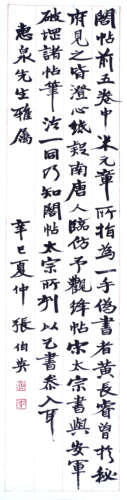 閣帖前五卷中米元章所指為一手偽書者黃長睿曾於秘
府見之皆澄心紙疑南唐人院仿予觀絳帖宋太宗書與安軍
破理諸帖筆法一同乃知閣帖太宗所刊以己書參入耳
惠泉先生雅屬
辛巳夏仲 張伯英